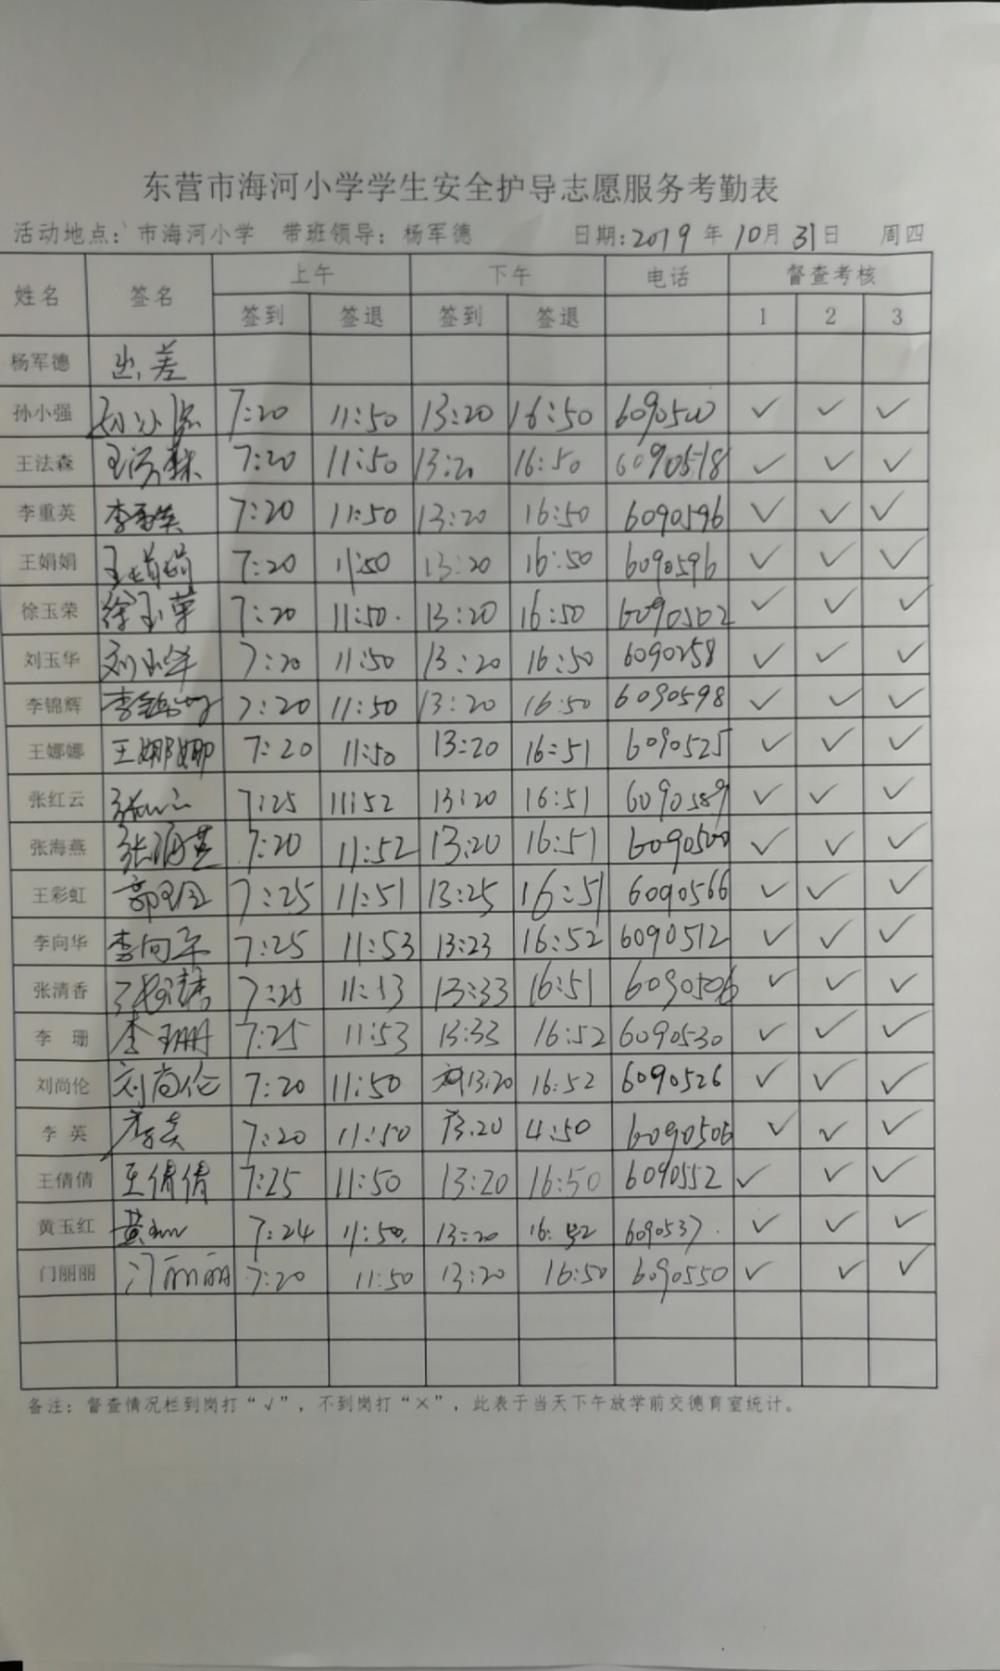 东营市海河小学学生安全护导志愿服务考勤表
活动地点：市海河小学 带班领导：杨军德 日期：2019年10月31日 周四
姓名 签名 上午 下午 电话 督查考核
签到 签退 签到 签退 1 2 3
杨军德 出差
孙小强 孙小强 7:20 11:50 13:20 16:50 ✓ ✓ ✓
王法森 王法森 7:20 11:50 13:20 16:50 6090518 ✓ ✓ ✓
李重英 李重英 7:20 11:50 13:20 16:50 6090596 ✓ ✓ ✓
王娟娟 王娟娟 7:20 11:50 13:20 16:50 6090596 ✓ ✓ ✓
徐玉荣 徐玉荣 7:20 11:50. 13:20 16:50 6090502 ✓ ✓ ✓
刘玉华 刘玉华 7:20 11:50 13:20 16:50 6090258 ✓ ✓ ✓
李锦辉 李锦辉 7:20 11:50 13:20 16:50 6090598 ✓ ✓ ✓
王娜娜 王娜娜 7:20 11:50 13:20 16:51 6090525 ✓ ✓ ✓
张红云 张红云 7:25 11:52 13:20 16:51 6090589 ✓ ✓ ✓
张海燕 张海燕 7:20 11:52 13:20 16:51 6090500 ✓ ✓ ✓
王彩虹 7:25 11:51 13:25 16:51 6090566 ✓ ✓ ✓
李向华 李向华 7:25 11:53 13:23 16:52 6090512 ✓ ✓ ✓
张清香 张清香 7:25 11:53 13:33 16:51 6090506 ✓ ✓ ✓
李珊 李珊 7:25 11:53 13:33 16:52 6090530 ✓ ✓ ✓
刘尚伦 刘尚伦 7:20 11:50 13:20 16:52 6090526 ✓ ✓ ✓
李英 李英 7:20 11:50 13.20 4:50 6090506 ✓ ✓ ✓
王倩倩 王倩倩 7:25 11:50 13:20 16:50 6090552 ✓ ✓ ✓
黄玉红 黄玉红 7:24 11:50. 13:20 16:52 6090537. ✓ ✓ ✓
门丽丽 门丽丽 7:20 11:50 13:20 16:50 6090550 ✓ ✓ ✓
备注：督查情况栏到岗打“√”，不到岗打“×”，此表于当天下午放学前交德育室统计。